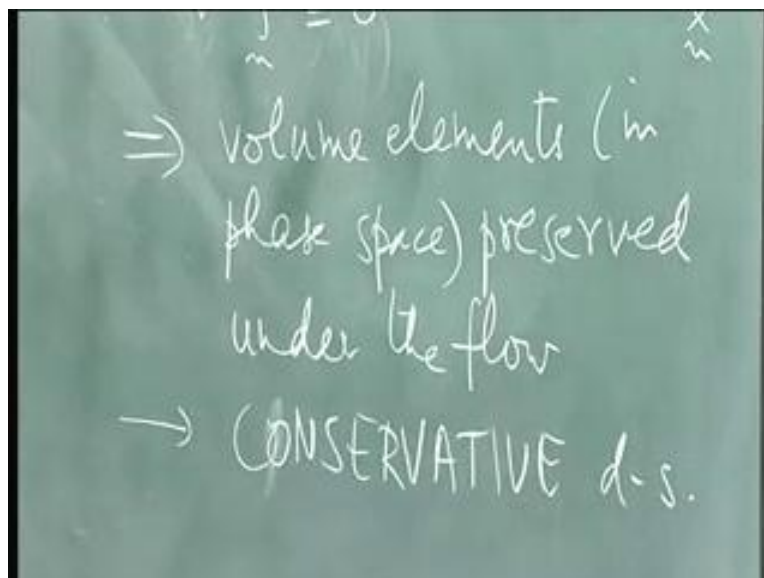 = 0 x
⇒ volume elements (in
phase space) preserved
under the flow
→ CONSERVATIVE d.s.